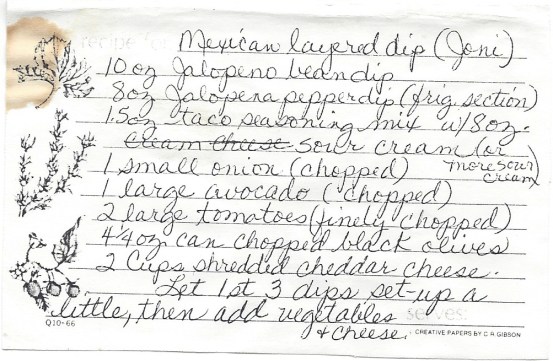 recipe for Mexican layered dip (Joni)
10 oz Jalopeno beandip
8oz Jalopena pepperdip (frig. section)
1.5oz taco seasoning mix w/8oz.
cream cheese sour cream (or
more sour
cream)
1 small onion (chopped)
1 large avocado (chopped)
2 large tomatoes (finely chopped)
4 1/4 oz. can chopped black olives
2 Cups shredded cheddar cheese.
Let 1st 3 dips set-up a
little, then add vegetables
& cheese.
serves:
Q10-66
CREATIVE PAPERS BY C.R. GIBSON